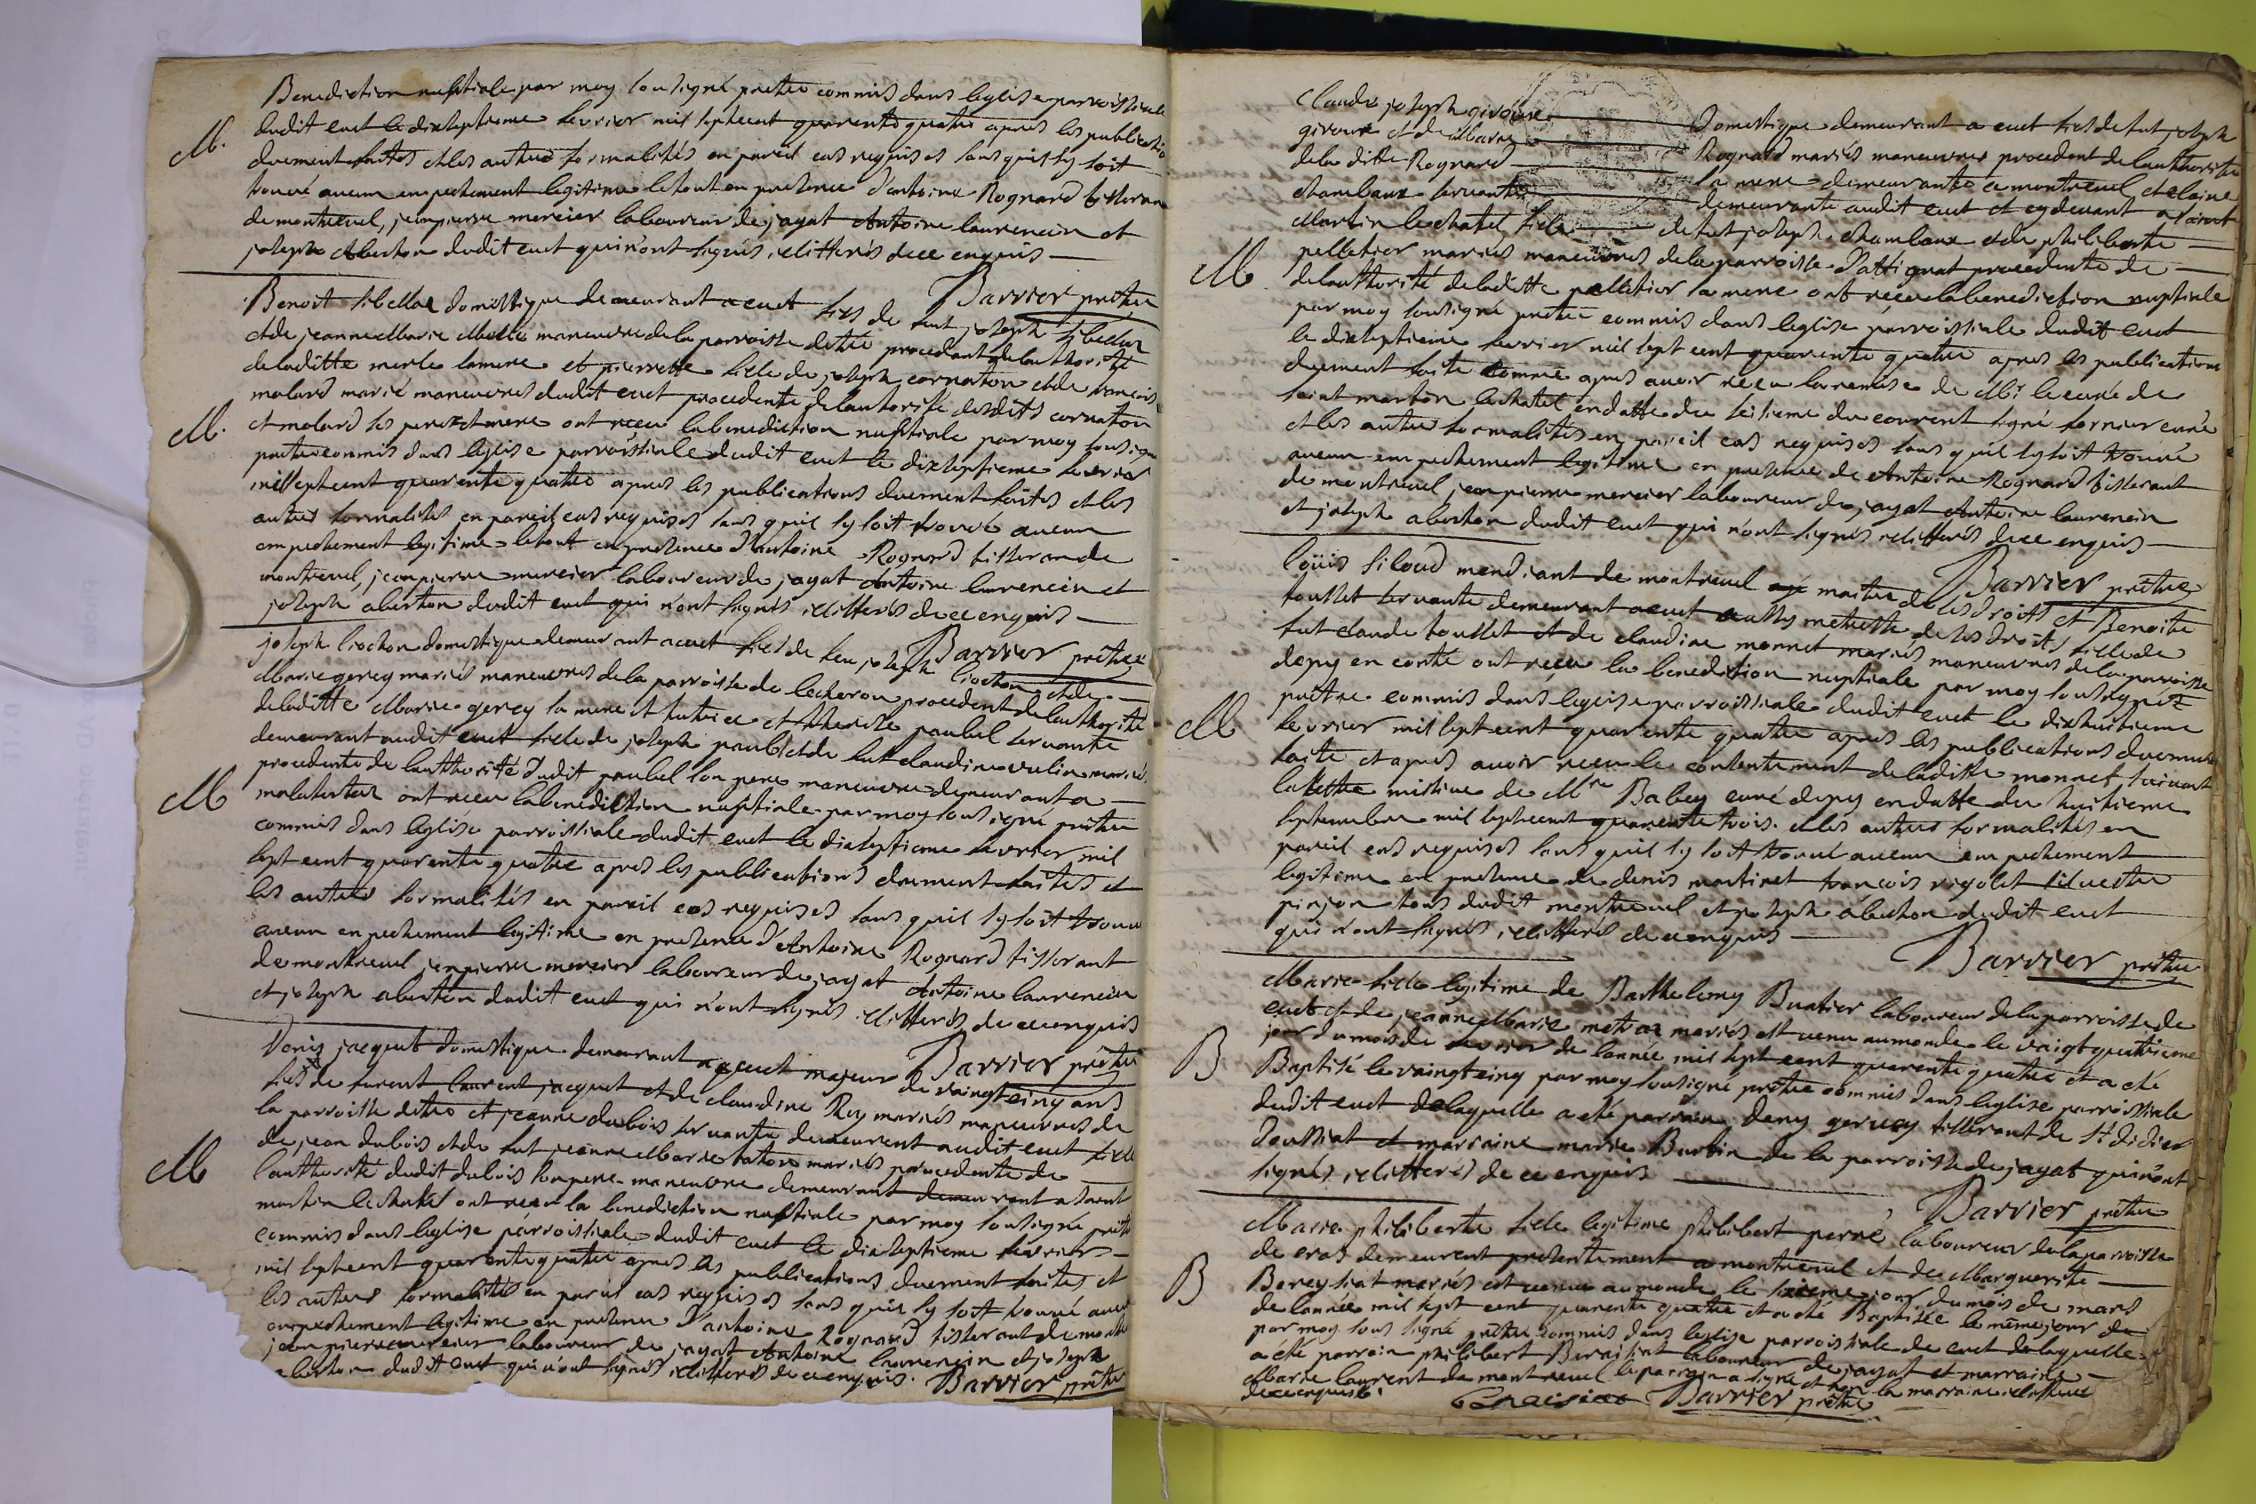 Benediction nuptiale par moy sousigné pretre commis dans leglise parroissiale
M.
dudit cuet le dixseptieme fevrier mil septcent quarente quatre apres les publications
duement faites et les autres formalités en pareil cas requises sans quil sy soit
trouvé aucun empechement legitime le tout en presence d'antoine Rognard tisseran
de montreuil, jeanpierre mercier laboureur de jayat Antoine laurencin et
joseph Aberton dudit cuet qui n'ont signés illitterés de ce enquis
Barvier pretre
Benoit domestique demeurant a cuet fils de fut joseph
et de jeanne Marie manœuvre de la parroisse procedant de lauthorité
de laditte merle samere et pierrette fille de joseph cornaton et de francoise
M.
molard marié manœuvres dudit cuet procedente de lautorité desdits cornaton
et molard ses pere et mere ont receu la benediction nuptiale par moy sousigné
pretre commis dans leglise parroissiale dudit cuet le dixseptieme fevrier
mil septcent quarente quatre apres les publications duement faites et les
autres formalités en pareil cas requises sans quil sy soit trouvé aucun
empechement legitime le tout en presence d'antoine Rognard tisseran de
montreuil, jeanpierre mercier laboureur de jayat Antoine laurencin et
joseph aberton dudit cuet qui n'ont signés illitterés de ce enquis
Barvier pretre
joseph domestique demeurant a cuet fils de feu joseph et de
Marie gerey mariés manœuvres de la parroisse de lecheroux procedent de lauthorité
de laditte Marie gerey sa mere et tutrice et Therese paubel servante
demeurant audit cuet fille de joseph paubel et de fut claudine vulin mariés
procedente de lauthorité dudit paubel son pere manœuvre demeurant a
M
malafretaz ont receu la benediction nuptiale par moy sousigné pretre
commis dans leglise parroissiale dudit cuet le dixseptieme fevrier mil
sept cent quarente quatre apres les publications duement faites et
les autres formalités en pareil cas requises sans quil sy soit trouvé
aucun empechement legitime en presence d'Antoine Rognard tisserant
de montreuil jeanpierre mercier laboureur de jayat Antoine laurencin
et joseph aberton dudit cuet qui n'ont signés illitterés de ce enquis
Barvier pretre
Denis jacquet domestique demeurant a cuet majeur de vaingtcinq ans
fils de laurent jacquet et de claudine Roy mariés manœuvres de
la parroisse et jeanne dubois servante demeurent audit cuet fille
de jean dubois et de fut jeanne Marie mariés procedente de
M
lauthorité dudit dubois son pere manœuvre demeurant demeurent a saint
martin lechatel ont receu la benediction nuptiale par moy sousigné pretre
commis dans leglise parroissiale dudit cuet le dixseptieme fevrier
mil septcent quarente quatre apres les publications duement faites, et
les autres formalités en pareil cas requises sans quil sy soit trouvé aucun
empechement legitime en presence d'antoine Rognard tisserant de
jeanpierre mercier laboureur de jayat Antoine laurencin et joseph
aberton dudit cuet qui n'ont signés illitterés de ce enquis. Barvier pretre
Claude joseph giroux domestique demeurant a cuet fils de fut joseph
giroux et de Rognard mariés manœuvres procedent de lauthorité
de la ditte Rognard sa mere demeurante a montreuil et claire
chambaux servante demeurante audit cuet et cydevant a saint
Martin lechatel fille de fut joseph chambaux et de philiberte
M.
pelletier mariés manœuvres de la parroisse d'attignat procedente de
de lauthorité de laditte pelletier sa mere ont receu la benediction nuptiale
par moy sousigné pretre commis dans leglise parroissiale dudit cuet
le dixseptieme fevrier mil sept cent quarente quatre apres les publications
duement faite comme apres avoir receu la remise de Mr. le curé de
saint martin lechatel en datte du seisieme du courent signé curé
et les autres formalités en pareil cas requises sans quil sy soit trouvé
aucun empechement legitime en presence de Antoine Rognard tisserant
de montreuil jeanpierre mercier laboureur de jayat Antoine laurencin
et joseph aberton dudit cuet qui n'ont signés illitterés de ce enquis
Barvier pretre
loüis mendiant de montreuil maitre de ses droits et Benoite
tousset servante demeurant a cuet aussy metresse de ses droits, fille de
fut claude tousset et de claudine monnet mariés manœuvres de la parroisse
depy en comté ont receu la benediction nuptiale par moy sousigné
M
pretre commis dans leglise parroissiale dudit cuet le dixhuitieme
fevrier mil sept cent quarente quatre apres les publications duement
faite et apres avoir receu le consentement de laditte monnet suivant
la lettre missive de Mre Babey curé depy en datte du huitieme
septembre mil septcent quarente trois. et les autres formalités en
pareil cas requises sans quil sy soit trouvé aucun empechement
legitime en presence de denis martinet francois rigolet silvestre
pinjon tous dudit montreuil et joseph aberton dudit cuet
qui n'ont signés, illitterés de ce enquis
Barvier pretre
Marie fille legitime de Barthelemy Buatier laboureur de la parroisse de
cuet et de jeanne Marie mariés est venu au monde le vaigtquatrieme
jour du mois de fevrier de l'année mil sept cent quarente quatre et a eté
B
Baptisé le vaingtcinq par moy sousigné pretre commis dans leglise parroissiale
dudit cuet de laquelle a eté parrain deny gerey tisserant de St. didier
daussiat et marraine marie Burtin de la parroisse de jayat qui n'ont
signés, illitterés de ce enquis
Barvier pretre
Marie philiberte fille legitime philibert perré, laboureur de la parroisse
de cras demeurent presentement a montreuil et de Marguerite
B
mariés est venue au monde le jour du mois de mars
de lannée mil sept cent quarente quatre et a eté Baptisée le même jour
par moy sous signé pretre commis dans leglise parroissiale de cuet de laquelle
a eté parrain philibert laboureur de jayat et marraine
Marie laurent de montreuil le parrain a signé et non la marraine illitteré
de ce enquis. Barvier pretre